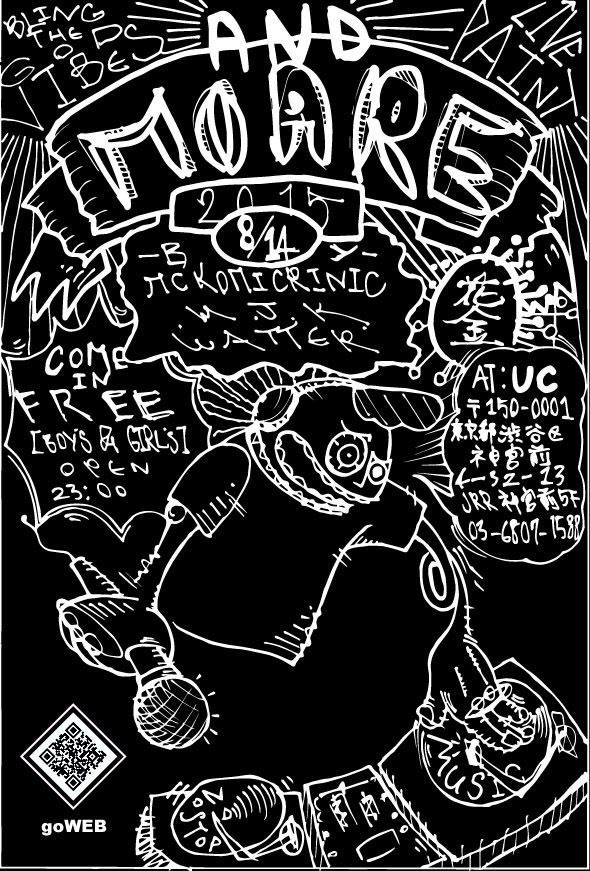 BLING
THE DS
&
GTBES
AND
LIVE
PAINT
MOARE
2015
8/14
-BY-
MC KOMICRINIC
M.J.K
WATTER
花
金
COME
IN
FREE
[BOYS & GIRLS]
OPEN
23:00
AT:UC
〒150-0001
東京都渋谷区
神宮前
6-32-13
JRR神宮前5F
03-6807-1588
MUSIC
NO
STOP
goWEB